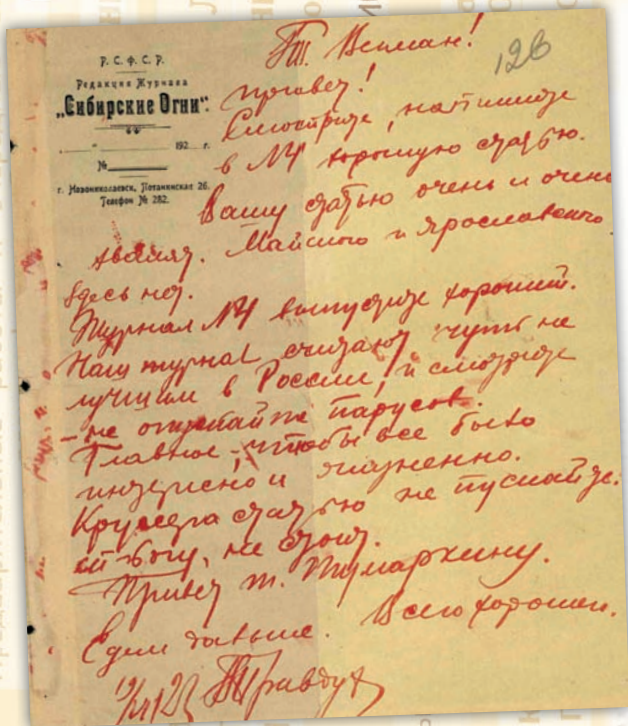 126
Р. С. Ф. С. Р.
Редакция Журнала
„Сибирские Огни“.
„ “ 192 г.
№
г. Новониколаевск, Потанинская 26.
Телефон № 282.
Тт. Вегман!
привет!
Смотрите, напишите
в №4 хорошую статью.
Вашу статью очень и очень
хвалят. Майского и Ярославского
здесь нет.
Журнал №4 выпустите хороший.
Наш журнал считают чуть не
лучшим в России, и смотрите
- не опускайте парусов.
Главное, чтобы все было
интересно и жизненно.
статью не пускайте.
ей богу, не стоит.
Привет т.
Едем дальше. Всего хорошего.
Правдух